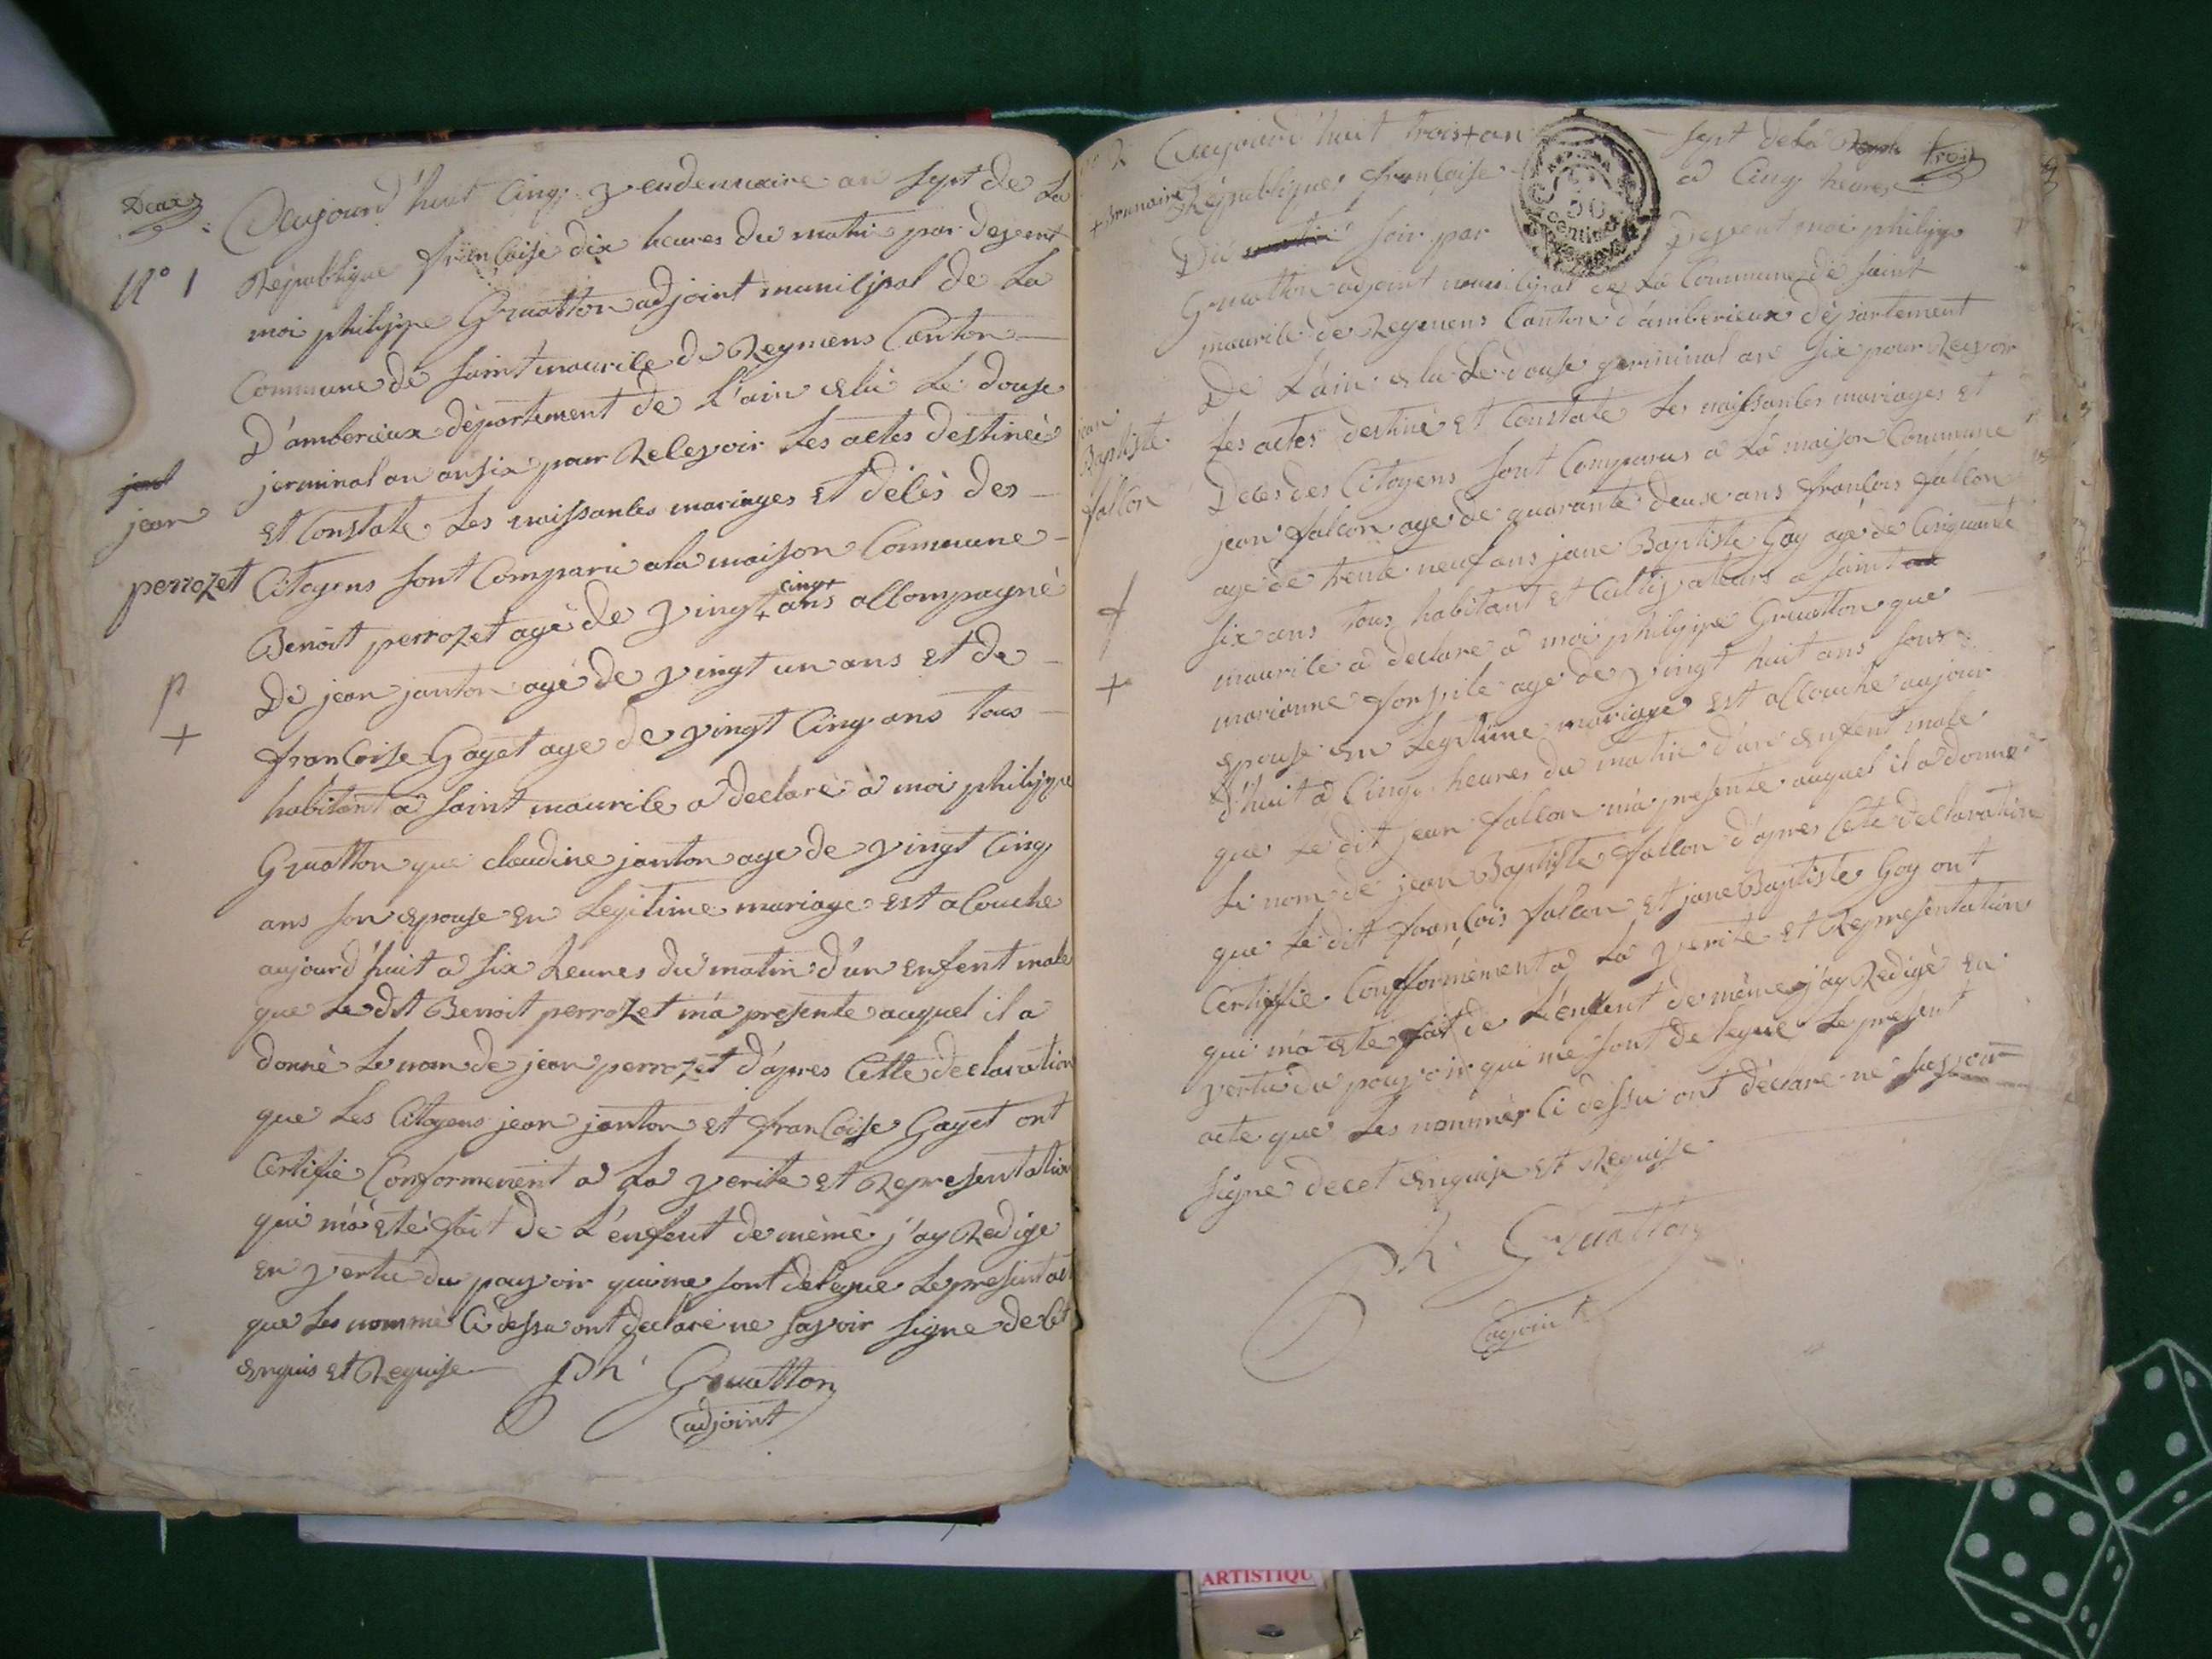 Deux
Aujourd'huit Cinq vendemiaire an sept de La
N° 1
République françoise dix heures du matin par devent
moi philippe Gruatton adjoint municipal de La
Commune de saint maurice de Reymens Canton
D'amberieux département de L'ain elu Le douse
jerminal an an six pour Recevoir Les actes destineé
jean
perrozet
Et Constate Les naissances mariages Et décès des
Citoyens sont Comparu a la maison Commune
Benoit perrozet agé de vingt + cinq ans accompagné
De jean janton agé de vingt un ans et de
francoise Gayet age de vingt Cinq ans tous
P
+
habitant a saint maurice a declaré à moi philippe
Gruatton que claudine janton age de vingt Cinq
ans son epouse en Legitime mariage est acouche
aujourd'huit a six heures du matin d'un enfent male
que Le dit Benoit perrozet m'a presente auquel il a
donné Le nom de jean perrozet d'apres Cette declaration
que Les Citoyens jean janton et francoise Gayet ont
Certifie Conformement a La verite et Representation
qui m'a eté fait De L'enfent de mème j'ay Redige
en vertu du pouvoir qui me sont delegue Le present act
que Les nommé Ci dessu ont declaré ne savoir signe de Cet
enquis et Requise
Ph Gruatton
adjoint
2
Aujourd'huit trois + an sept de la trois
+ Brumaire
République françoise a Cinq heures
Du soir par Devent moi philippe
Gruatton adjoint municipal de La Commune de saint
maurice de Reymens Canton d'amberieux département
De L'ain elu Le douse germinal an six pour Recevoir
jean
Baptiste
falcon
Les actes destiné et Constate Les naissances mariages et
Deces des Citoyens sont Comparus a La maison Commune
jean falcon age de quarante deuse ans francois falcon
age de trente neuf ans jane Baptiste Goy agé de Cinquante
six ans tous habitant et Cultivateurs a saint
f
+
maurice a declare a moi philippe Gruatton que
marianne age de vingt huit ans sons
epouse en Legitime mariage est accouche aujour
d'huit a Cinq heures du matin d'un enfent male
que Le dit jean falcon m'a presente auquel il a donne
Le nom de jean Baptiste falcon d'apres Cete declaration
que Le dit francois falcon et jane Baptiste Goy ont
Certiffie Conformèment a La verite et Representation
qui m'a ete fait de L'enfent de mème j'ay Redigé en
vertu du pouvoir qui me sont delegue Le present
acte que Les nommèr Ci dessu ont déclare ne savoir
signe decet enquise et Requise
Ph Gruatton
adjoint
ARTISTIQU